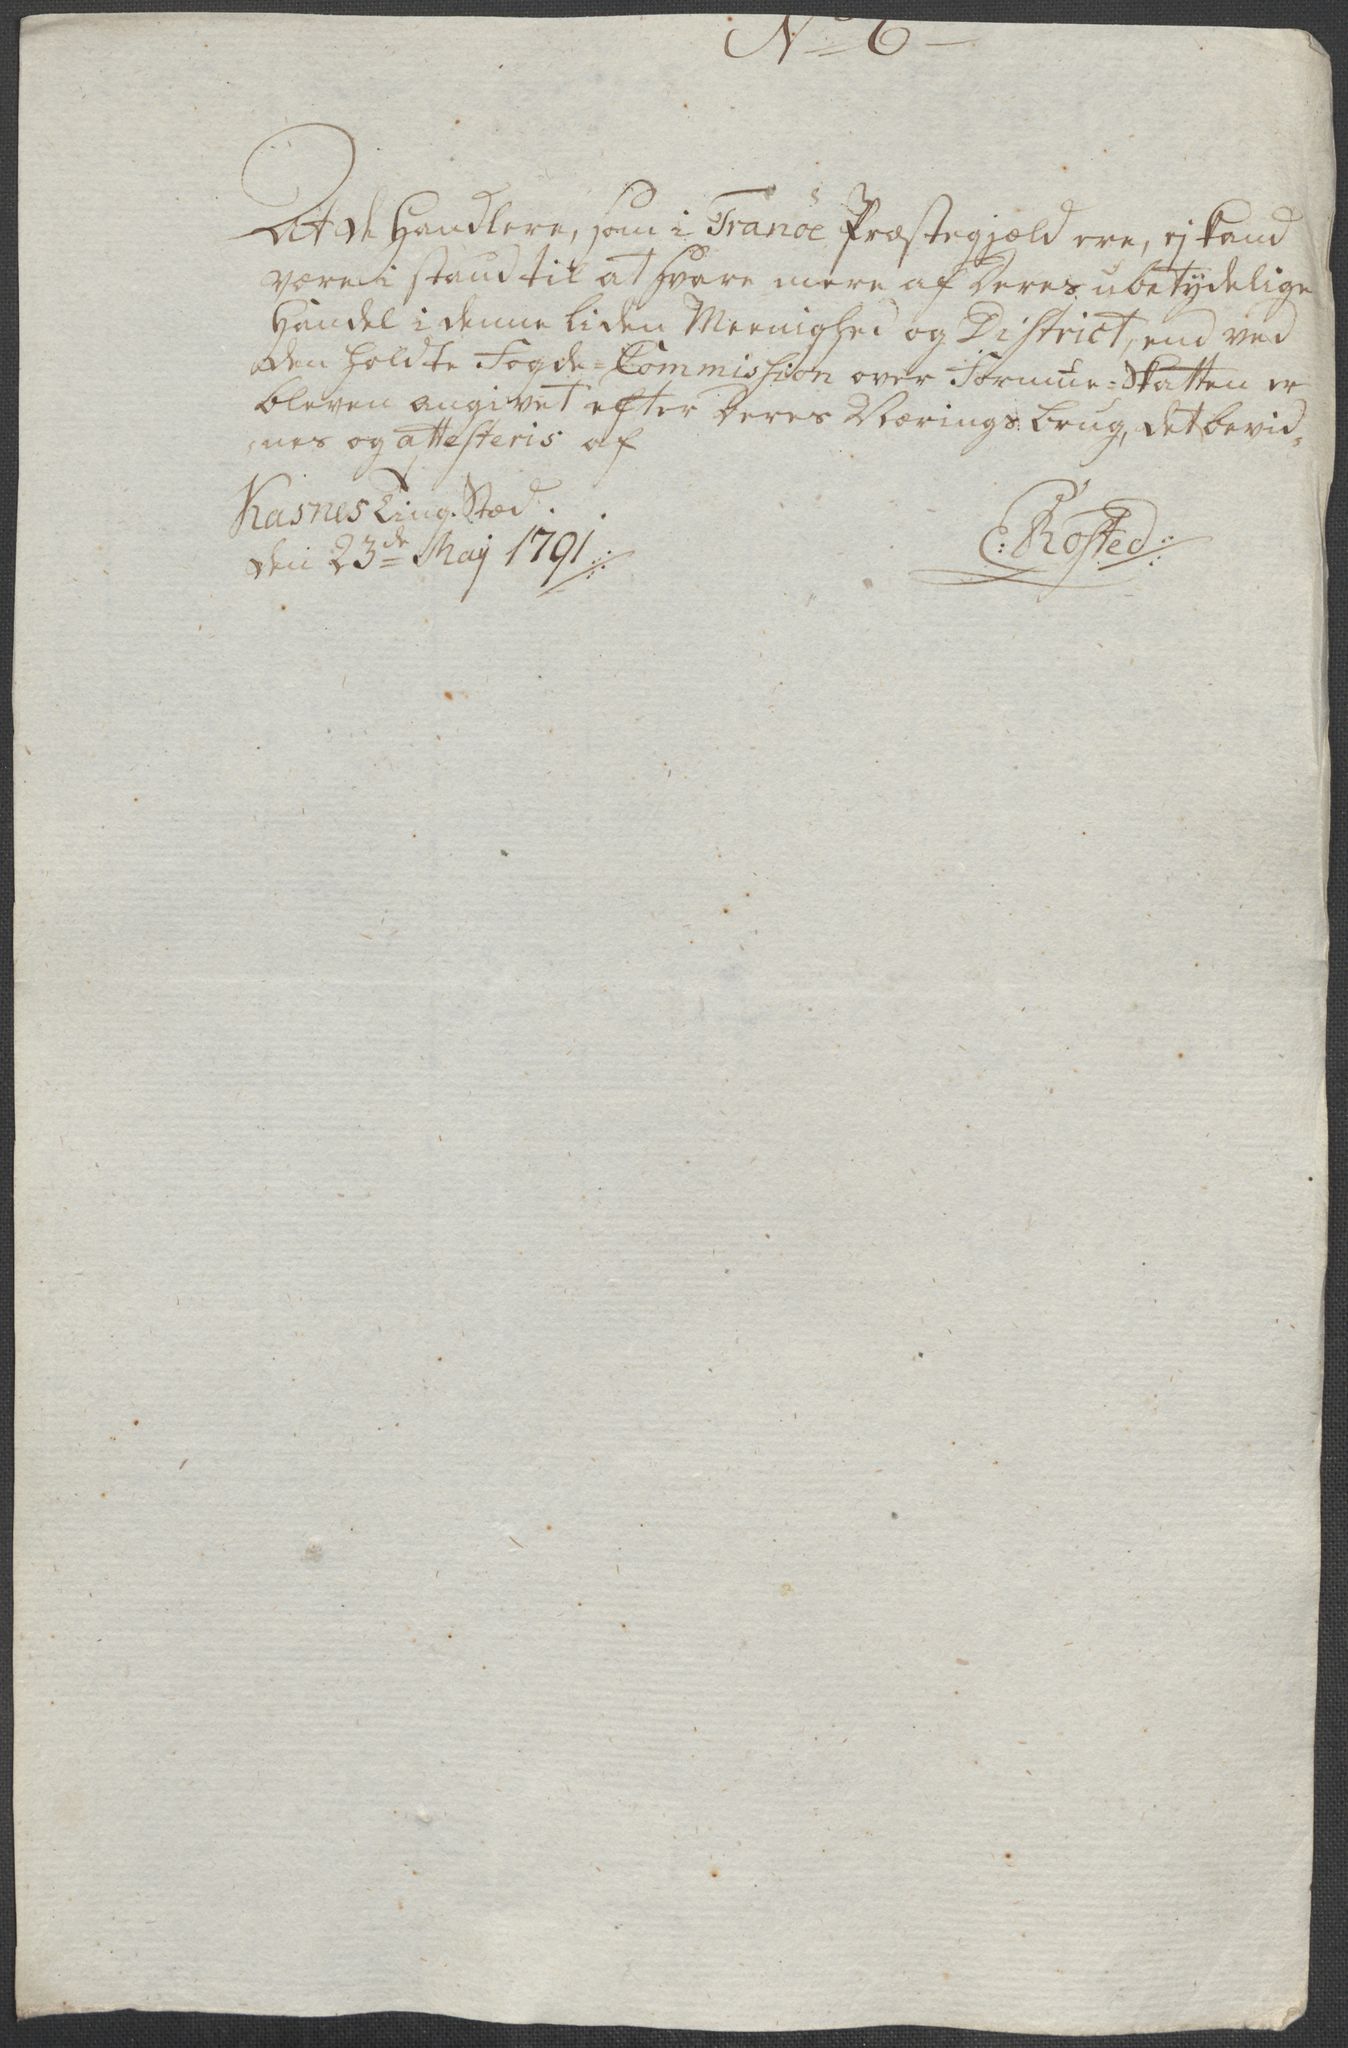 No 6
At de Handlere, som i Tranöe Præstegjæld ere, ej kand
være i stand til at svare mere af deres ubetÿdelige
Handel i denne liden Meenighed og District, end ved
den holdte Fogde=Commission over Formue=Skatten er
bleven angivet efter deres Nærings brug, det bevid=
=nes og attesteris af
Kasnes Ting-Stæd.
den 23de Maj 1791.
C: Rosted